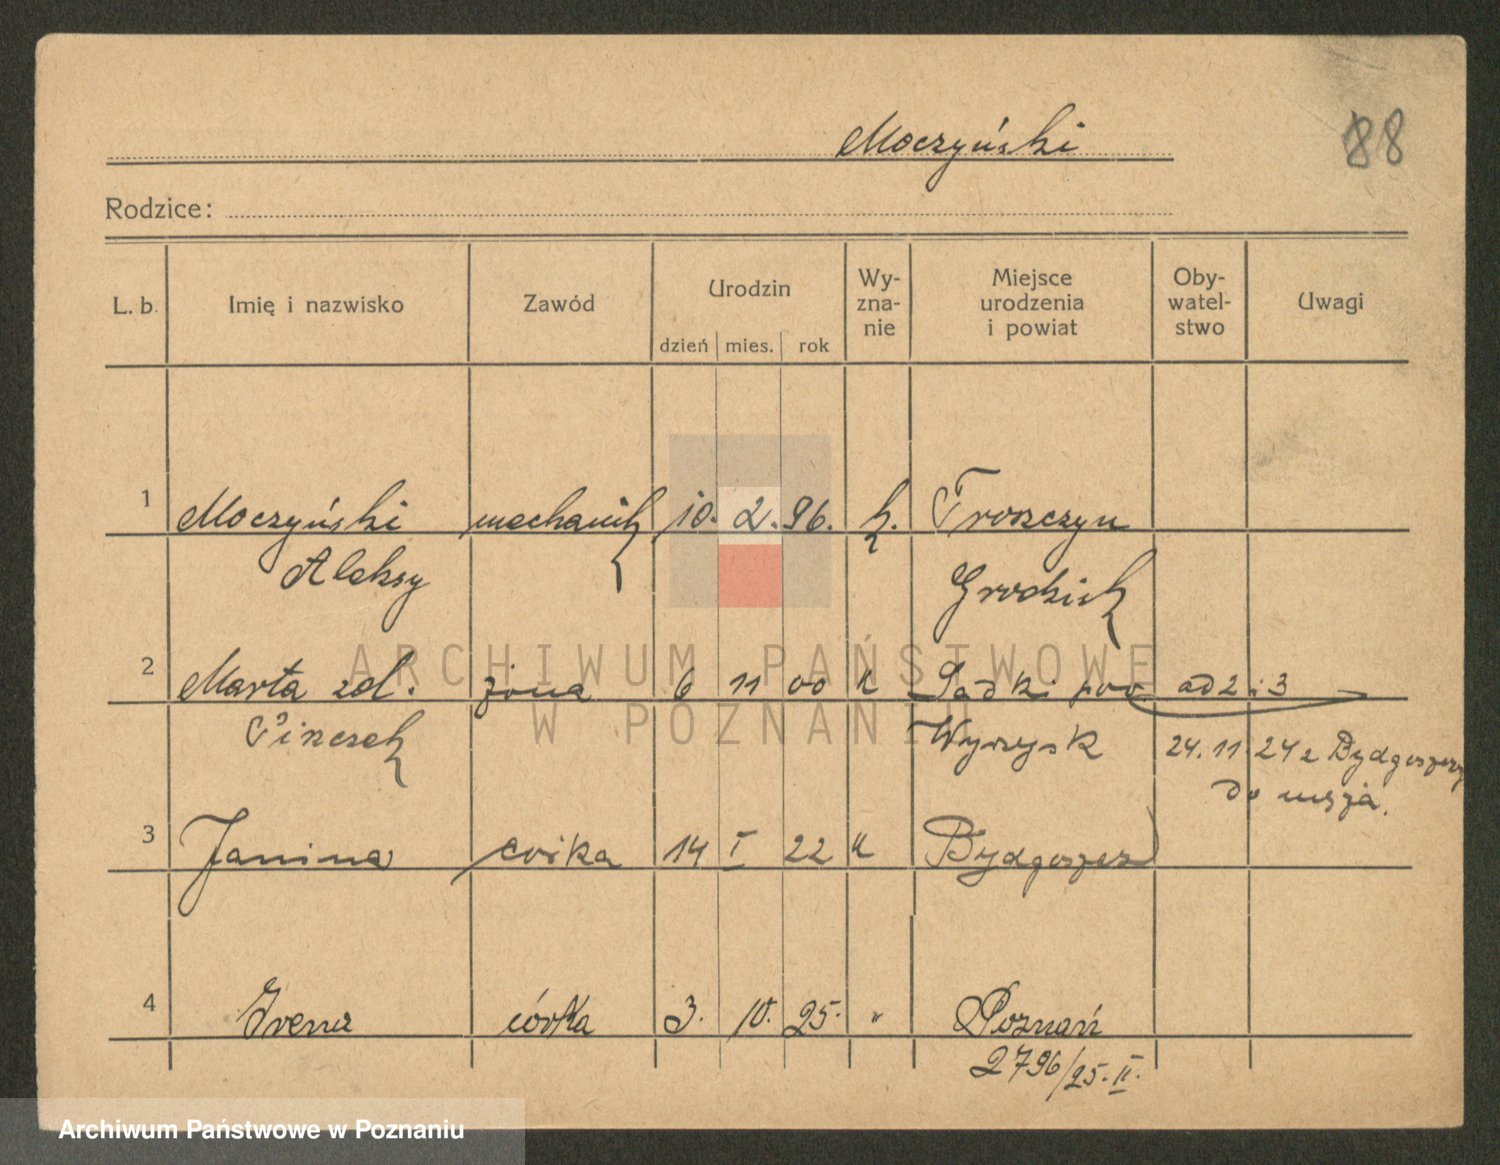 Moczyński
88
Rodzice:
L. b. Imię i nazwisko Zawód Urodzin Wy-zna-nie Miejsce urodzenia i powiat Oby-watel-stwo Uwagi
dzień mies. rok
1 Moczyński mechanik 10. 2. 96. k. Troszczyn
Aleksy Grodzisk
2 Marta zol. żona 6 11 00 k Sadki pow ad 2 i 3
Wyrzysk 24. 11. 24 z Bydgoszczy
do męża.
3 Janina córka 14 I 22 k Bydgoszcz
4 Irena córka 3. 10. 25. " Poznań
2796/25. II.
ARCHIWUM PAŃSTWOWE
W POZNANIU
Archiwum Państwowe w Poznaniu